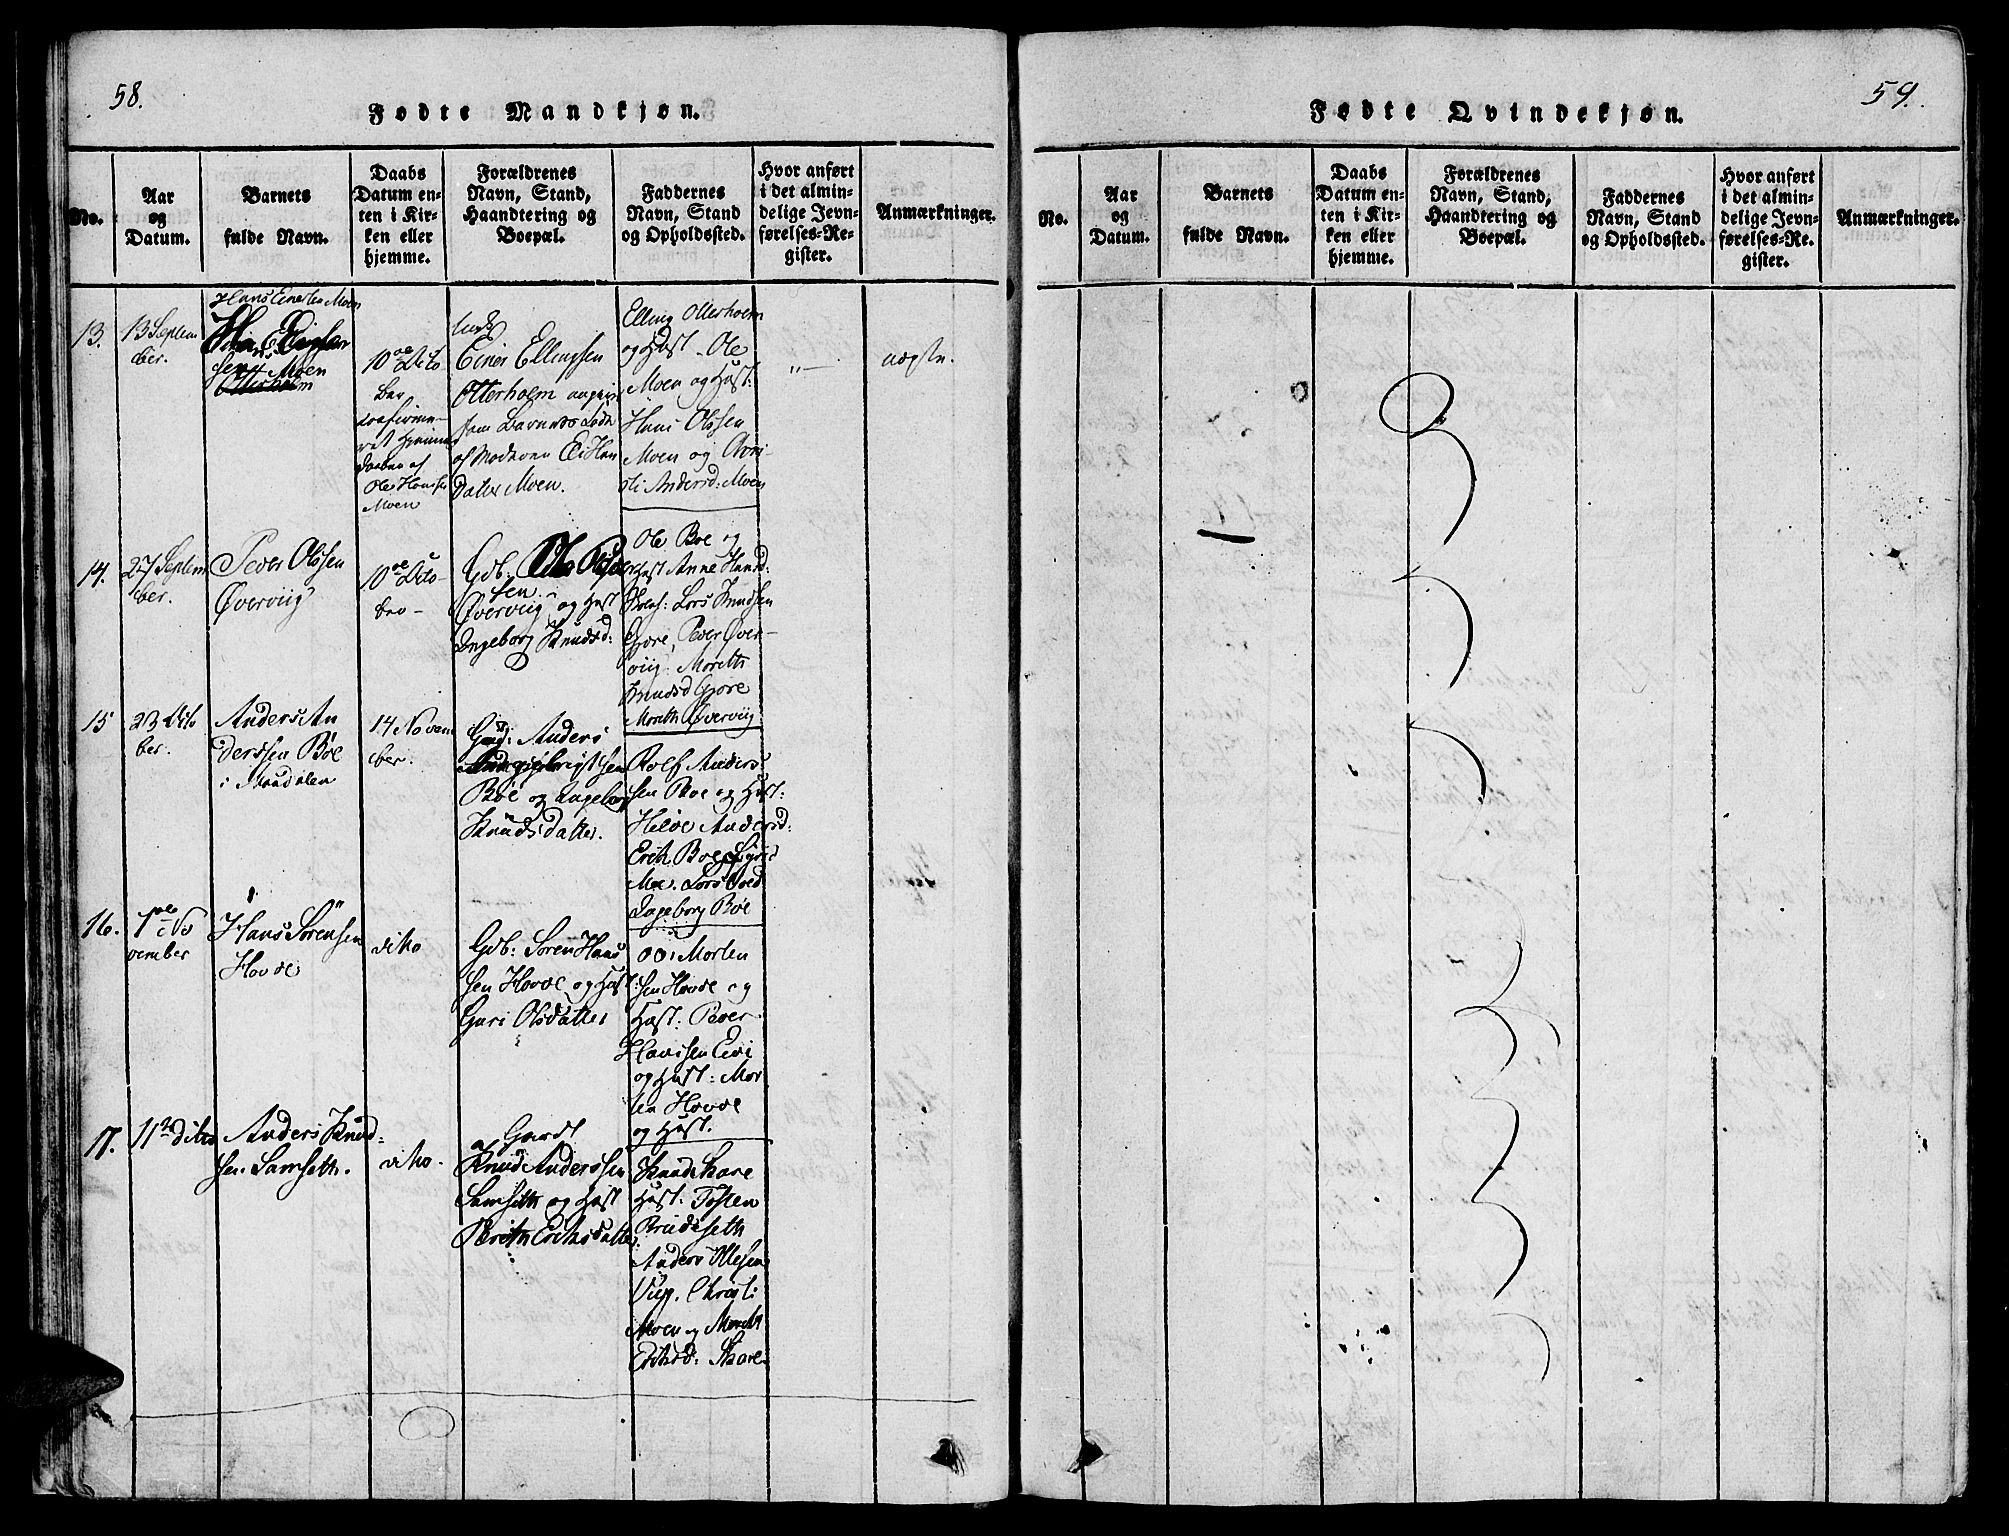 58.
Fødte Mandkjøn.
No.
Aar
og
Datum.
Barnets
fulde Navn.
Daabs
Datum en-
ten i Kir-
ken eller
hjemme.
Forældrenes
Navn, Stand,
Haandtering og
Boepæl.
Faddernes
Navn, Stand
og Opholdssted.
Hvor anført
i det almin-
delige Jevn-
førelses-Re-
gister.
Anmærkninger.
13.
13 Septem
ber.
Hans Einersen Moen
Moen
Otterholm
10de Octo
ber
confirme-
ret hjemme
daaben af
Ole Hansen
Moen
Einer Ellingsen
Otterholm angiven
som Barnets Fader
af Moderen
Datter Moen.
Elling Otterholm
og Hust. Ole
Moen og Hust:
Hans Olssen
Moen og
Andersd: Moen
uægte.
14.
27 Septem
ber.
Peder Olssen
Øverviig
10de Octo-
ber-
Gdb: Ole Peder
sen
Øverviig og Hust
Ingeborg Knudsd:
Ole Boe og
Hust Anne Hansd:
Lars Knudsen
Gjøre, Peder Øver-
viig. Marith
Knudsd Gjøre
Marith Øverviig
15
23 Octo
ber.
Anders An
derssen Böe
i Maadalen
14 Novem
ber.
Gmd: Anders
Böe og Ingeborg
Knudsdatter.
Rolf Anders
sen Boe og Hust:
Andersd:
Erik Boe Sigrid
Moe. Lars
Ingeborg Böe
16.
1ste No
vember
Hans Sörensen
Hovde
dito
Gdb: Sören Hans
sen Hovde og Hust:
Guri Olsdatter
Morten
sen Hovde og
Hust: Peder
Hanssen
og Hust: Mor
ten Hovde
og Hust.
17.
11te dito
Anders Knud-
sen Samseth.
dito.
Gaardb
Knud Anderssen
Samseth og Hust
Berith Eriksdatter
Knud Skare
Hust: Tosten
Brudeseth
Anders Olesen
Viig. Christi
Moen og Marith
Eriksd: Skare-
59.
Fødte Qvindekjøn.
No.
Aar
og
Datum.
Barnets
fulde Navn.
Daabs
Datum en-
ten i Kir-
ken eller
hjemme.
Forældrenes
Navn, Stand,
Haandtering og
Boepæl.
Faddernes
Navn, Stand
og Opholdssted.
Hvor anført
i det almin-
delige Jevn-
førelses-Re-
gister.
Anmærkninger.